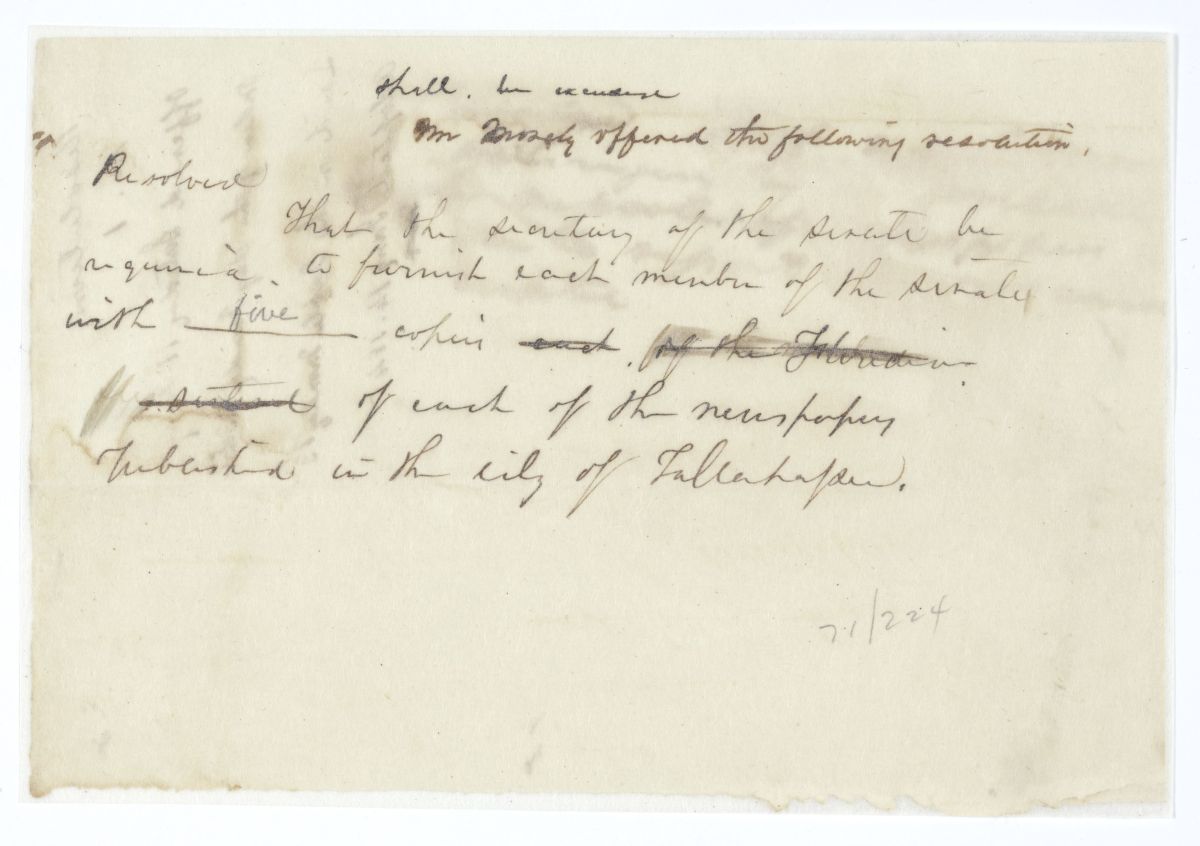 shall. be excused
Mr Mosely offered the following resolution.
Resolved
That the secretary of the senate be
required to furnish each member of the senate
with five copies each. of the Floridian
of each of the newspapers
Published in the city of Tallahassee.
71/224